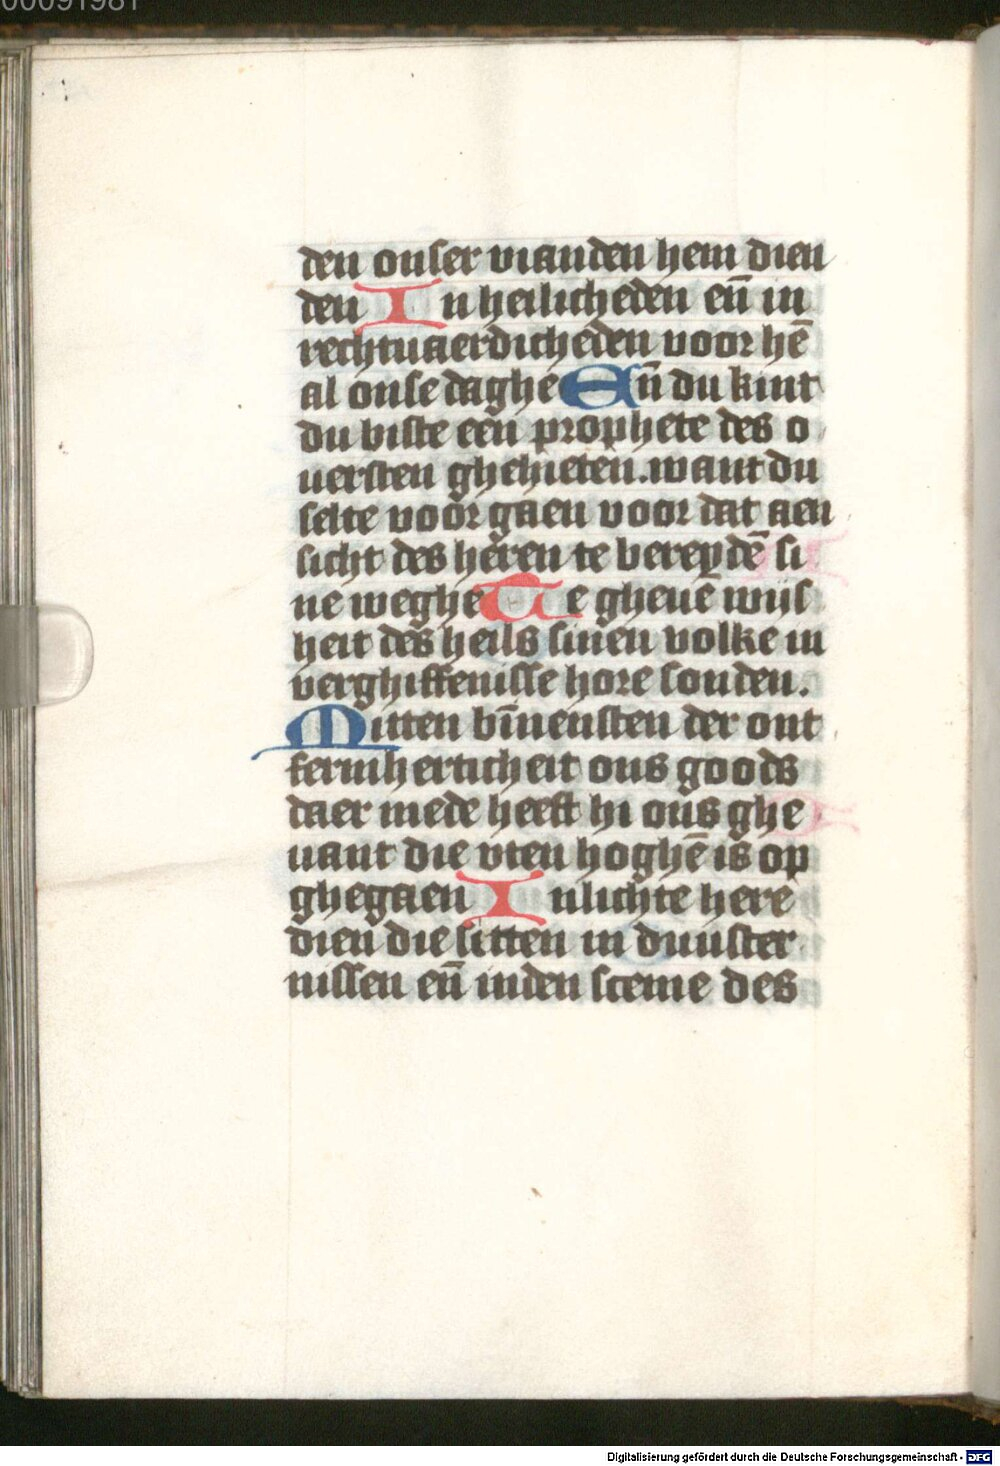 00091981
den onser vianden hem dien
den In heilicheden en̄ in
rechtuaerdicheden voor hē
al onse daghe En̄ du kint
du biste een prophete des o
uersten ghehieten. want du
selte voor gaen voor dat aen
sicht des heren te bereydē si
ne weghe Te gheuē wijs
heit des heils sinen volke in
verghiffenisse hore sonden.
Mitten bīnensten der ont
fermherticheit ons goods
daer mede heeft hi ons ghe
uant die vten hoghē is op
ghegaen Inlichte here
dien die sitten in duuster
nissen en̄ inden sceme des
Digitalisierung gefördert durch die Deutsche Forschungsgemeinschaft - DFG